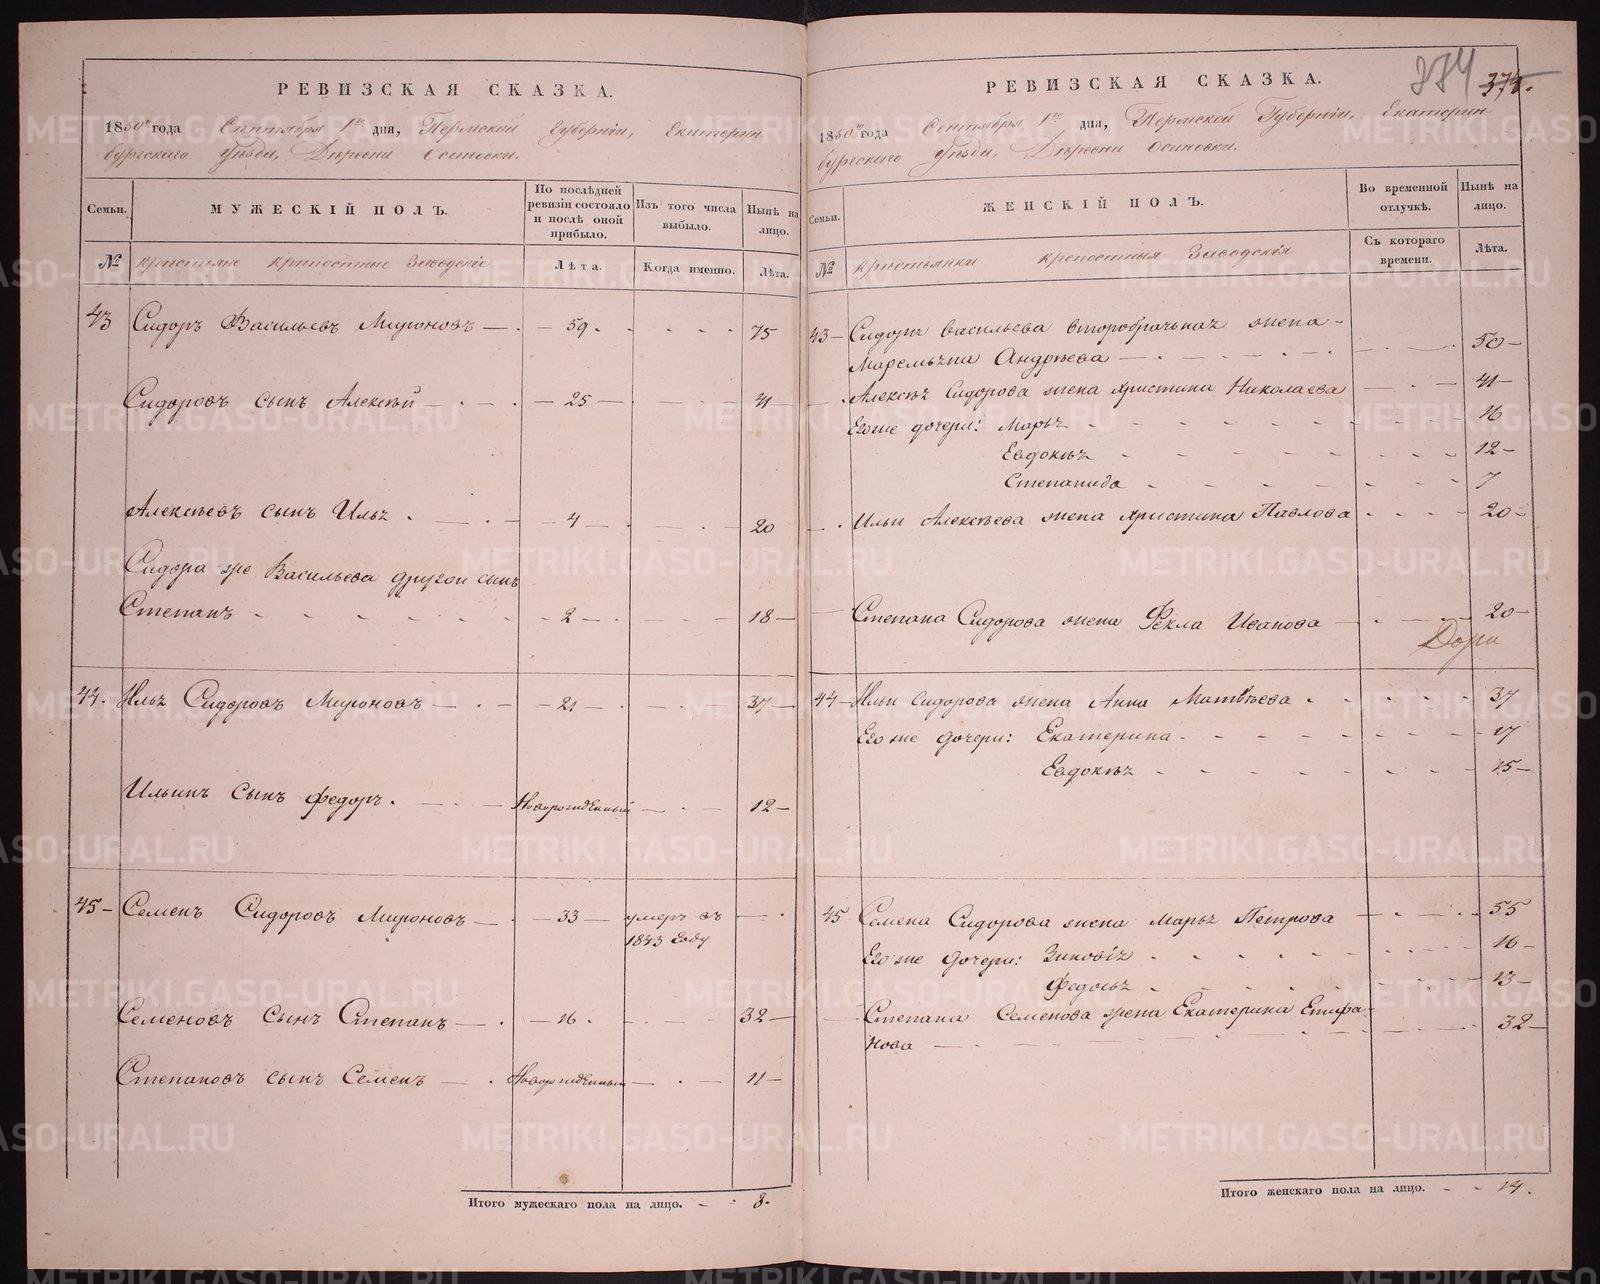 РЕВИЗСКАЯ СКАЗКА.
1850го года Сентября 1го дня, Пермской Губерніи, Екатерин
бургскаго Уѣзда, Деревни Осиновки.
Семьи.
МУЖЕСКІЙ ПОЛЪ.
По послѣдней
ревизіи состояло
и послѣ оной
прибыло.
Изъ того числа
выбыло.
Нынѣ на
лицо.
№
крестьяне крепостные Заводскіе
Лѣта.
Когда именно.
Лѣта.
43 Сидоръ Васильевъ Мироновъ 59. 75
Сидоровъ сынъ Алексѣй 25 41
Алексѣевъ сынъ Илья 4 20
Сидора же Васильева другой сынъ
Степанъ 2 18
44. Илья Сидоровъ Мироновъ 21 37
Ильинъ сынъ Федоръ. Новорожденный 12
45 Семенъ Сидоровъ Мироновъ 33 умеръ въ
1843 году
Семеновъ сынъ Степанъ 16. 32
Степановъ сынъ Семенъ Новорожденный 11
Итого мужескаго пола на лицо. 8.
374 374.
РЕВИЗСКАЯ СКАЗКА.
1850го года Сентября 1го дня, Пермской Губерніи, Екатерин
бургскаго Уѣзда, Деревни Осиновки.
Семьи.
ЖЕНСКІЙ ПОЛЪ.
Во временной
отлучкѣ.
Нынѣ на
лицо.
№
крестьянки крепостныя Заводскія
Съ котораго
времени.
Лѣта.
43 Сидора Васильева второбрачная жена
Маремьяна Андрѣева 50
Алексѣя Сидорова жена Христина Николаева 41
Его же дочери: Марья 16
Евдокѣя 12
Степанида 7
Ильи Алексѣева жена Христина Павлова 20
Степана Сидорова жена Фекла Иванова 20
44 Ильи Сидорова жена Анна Матвѣева 37
Его же дочери: Екатерина. 17
Евдокѣя 15
45 Семена Сидорова жена Марья Петрова 55
Его же дочери: Зиновія 16
Федосья 13
Степана Семенова жена Екатерина Епифа
нова 32
Итого женскаго пола на лицо. 14.
METRIKI.GASO-URAL.RU